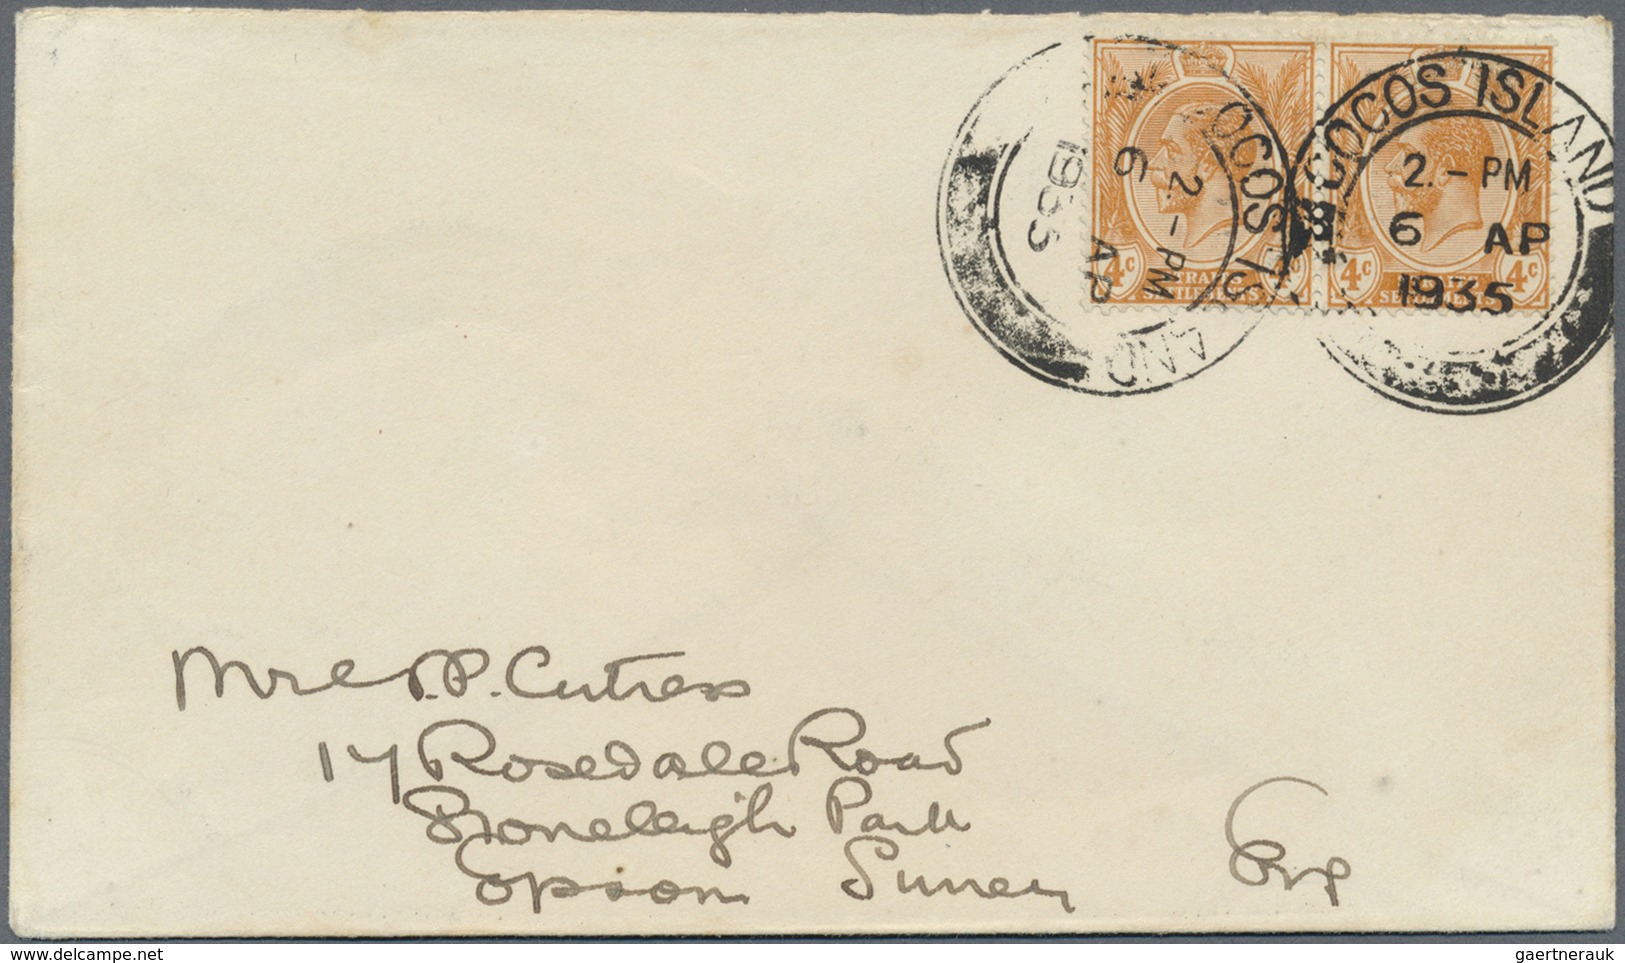 COCOS ISLAND
2.-PM
6 AP
1935
OCOS IS AND
2.-PM
6 AP
1935
4c
4c
4c
Mrs P. Cutress
17 Rosedale Road
Stoneleigh Park
Epsom Surrey
Eng
gaertnerauk